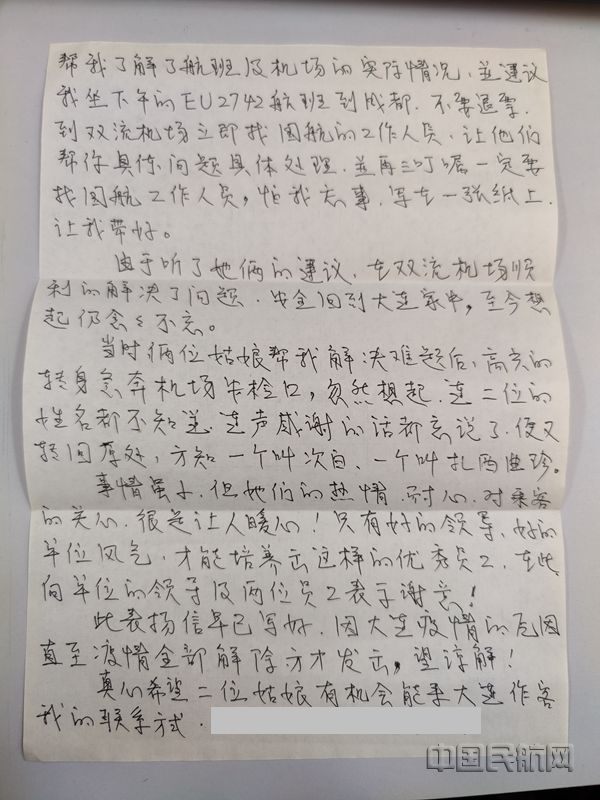 帮我了解了航班及机场的实际情况，并建议
我坐下午的EU2742航班到成都．不要退票．
到双流机场立即找国航的工作人员．让他们
帮你具体问题具体处理．并再三叮嘱一定要
找国航工作人员，怕我忘事．写在一张纸上．
让我带好。
由于听了她俩的建议．在双流机场顺
利的解决了问题．安全回到大连家中，至今想
起仍念念不忘。
当时俩位姑娘帮我解决难题后，高兴的
转身急奔机场安检口，忽然想起．连二位的
姓名都不知道．连声感谢的话都忘说了．便又
转回原处，方知一个叫次白、一个叫扎西曲珍。
事情虽小．但她们的热情．耐心．对乘客
的关心．很是让人暖心！只有好的领导、好的
单位风气，才能培养出这样的优秀员工．在此
向单位的领导及两位员工表于谢意！
此表扬信早已写好．因大连疫情的原因
直至疫情全部解除方才发出，望谅解！
真心希望二位姑娘有机会能来大连作客
我的联系方式．
中国民航网